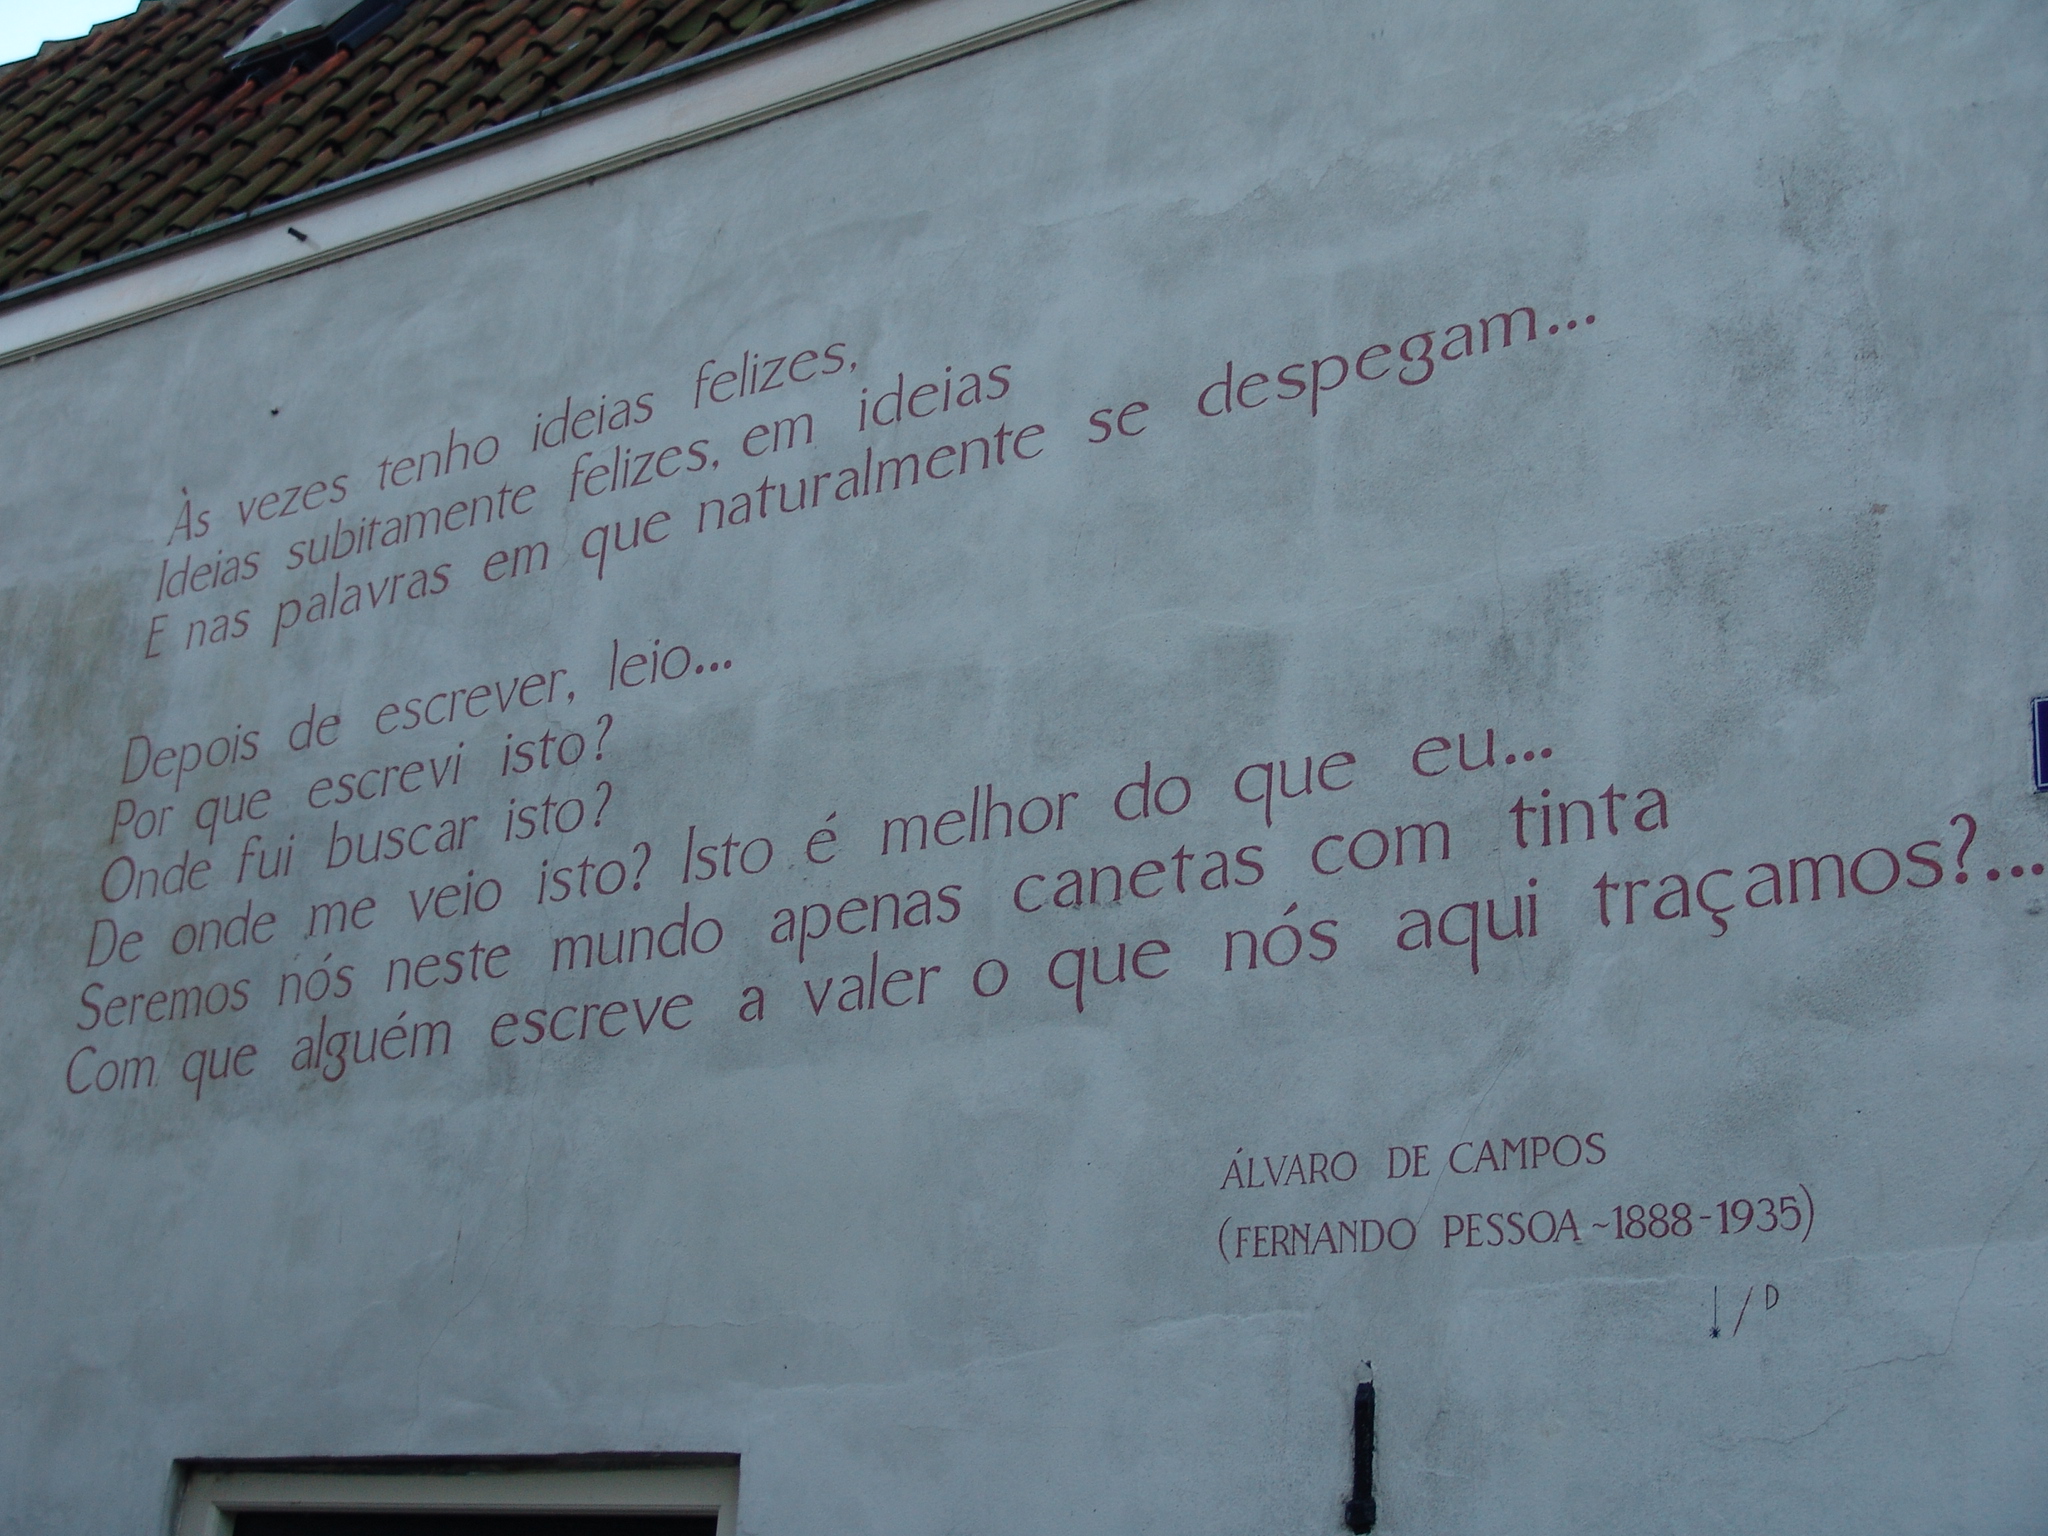 Às vezes tenho ideias felizes,
Ideias subitamente felizes, em ideias
E nas palavras em que naturalmente se despegam...
Depois de escrever, leio...
Por que escrevi isto?
Onde fui buscar isto?
De onde me veio isto? Isto é melhor do que eu...
Seremos nós neste mundo apenas canetas com tinta
Com que alguém escreve a valer o que nós aqui traçamos?...
ÁLVARO DE CAMPOS
(FERNANDO PESSOA ~1888-1935)
/ D